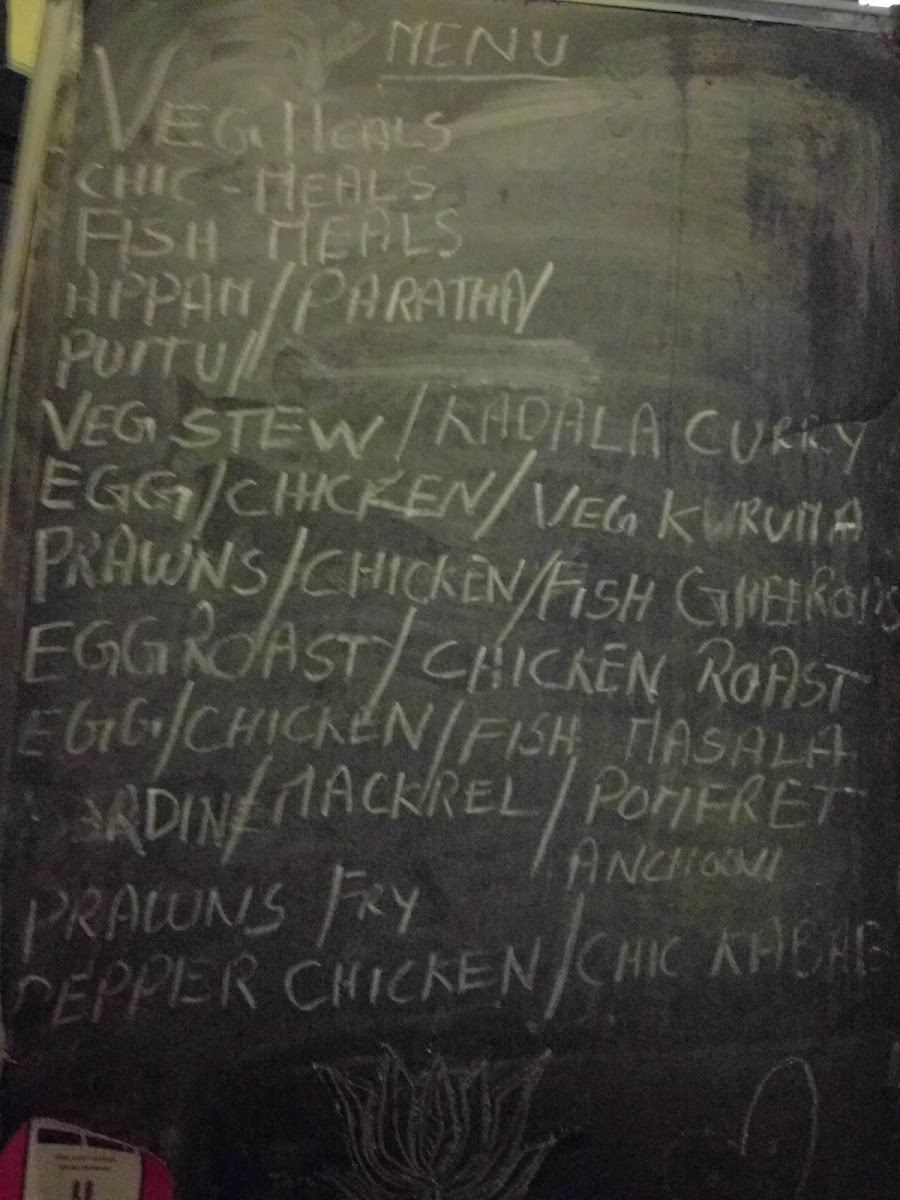 MENU
VEG MEALS
CHIC-MEALS
FISH MEALS
APPAM/PARATHA/
PUTTU/
VEG STEW/KADALA CURRY
EGG/CHICKEN/VEG KURUMA
PRAWNS/CHICKEN/FISH GHEEROAS
EGGROAST/CHICKEN ROAST
EGG/CHICKEN/FISH MASALA
SARDINE/MACKREL/POMFRET
ANCHOOVI
PRAWNS FRY
PEPPER CHICKEN/CHIC KABAB